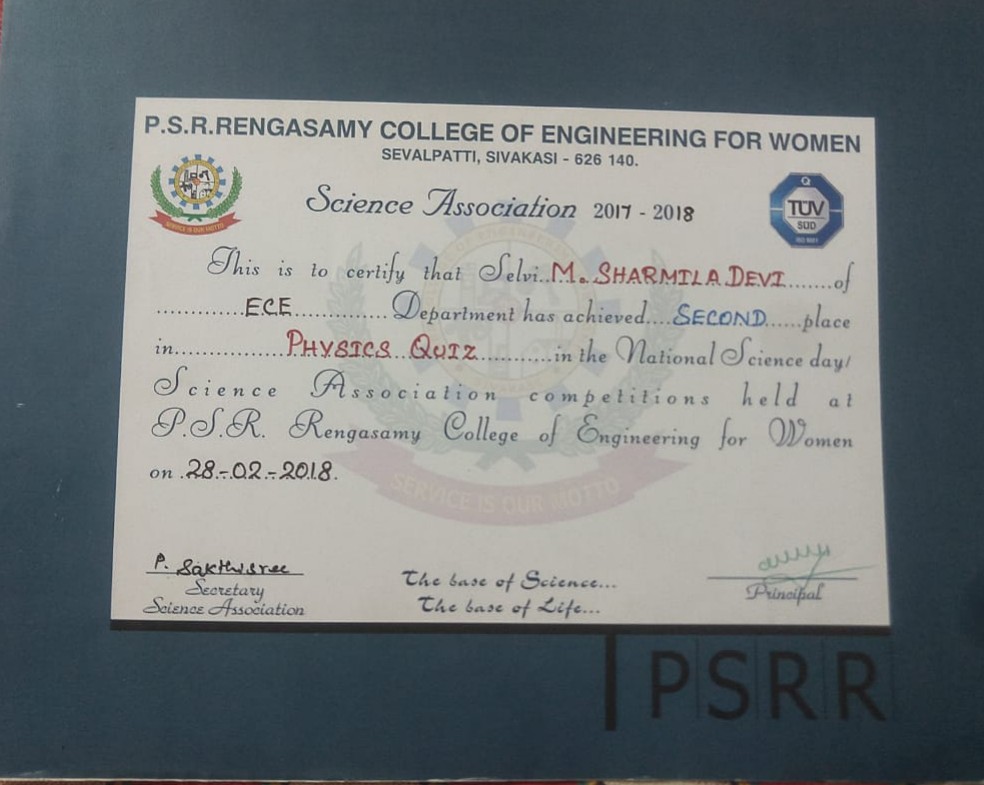 P.S.R.RENGASAMY COLLEGE OF ENGINEERING FOR WOMEN
SEVALPATTI, SIVAKASI - 626 140.
SERVICE IS OUR MOTTO
Science Association 2017 - 2018
TÜV
SÜD
ISO 9001
This is to certify that Selvi..M. SHARMILA DEVI.......of
..............ECE.............. Department has achieved....SECOND......place
in................PHYSICS QUIZ...........in the National Science day/
Science Association competitions held at
P.S.R. Rengasamy College of Engineering for Women
on .28-02-2018.
SIVAKASI
SERVICE IS OUR MOTTO
P. Sakthisree
Secretary
Science Association
The base of Science...
The base of Life...
Principal
PSRR